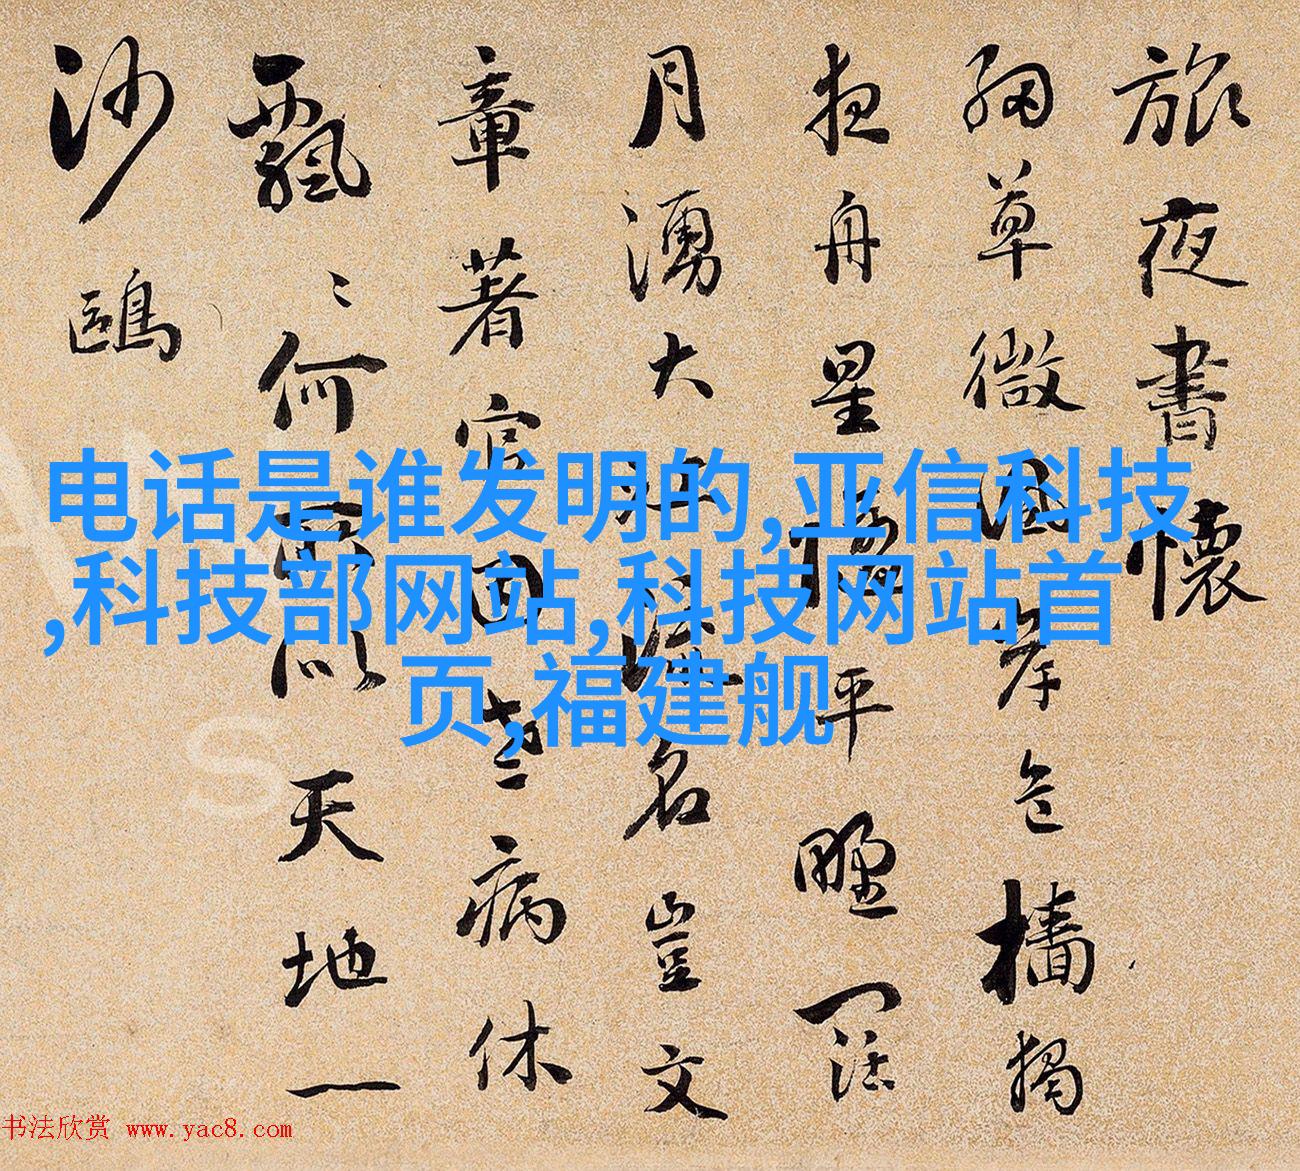 旅夜書懷
細草微風岸危檣獨
夜舟星平野闊
月湧大江流名豈文
章著官因老病休
飄〻何所似天地一
沙鷗
电话是谁发明的,亚信科技
,科技部网站,科技网站首
页,福建舰
书法欣赏 www.yac8.com